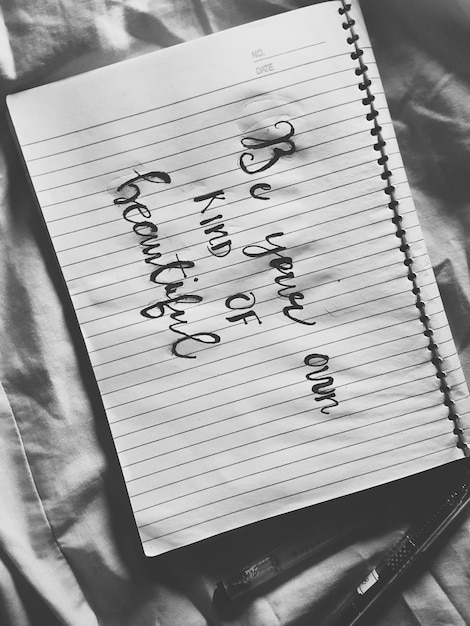 NO.
DATE
Be your own
KIND OF
beautiful